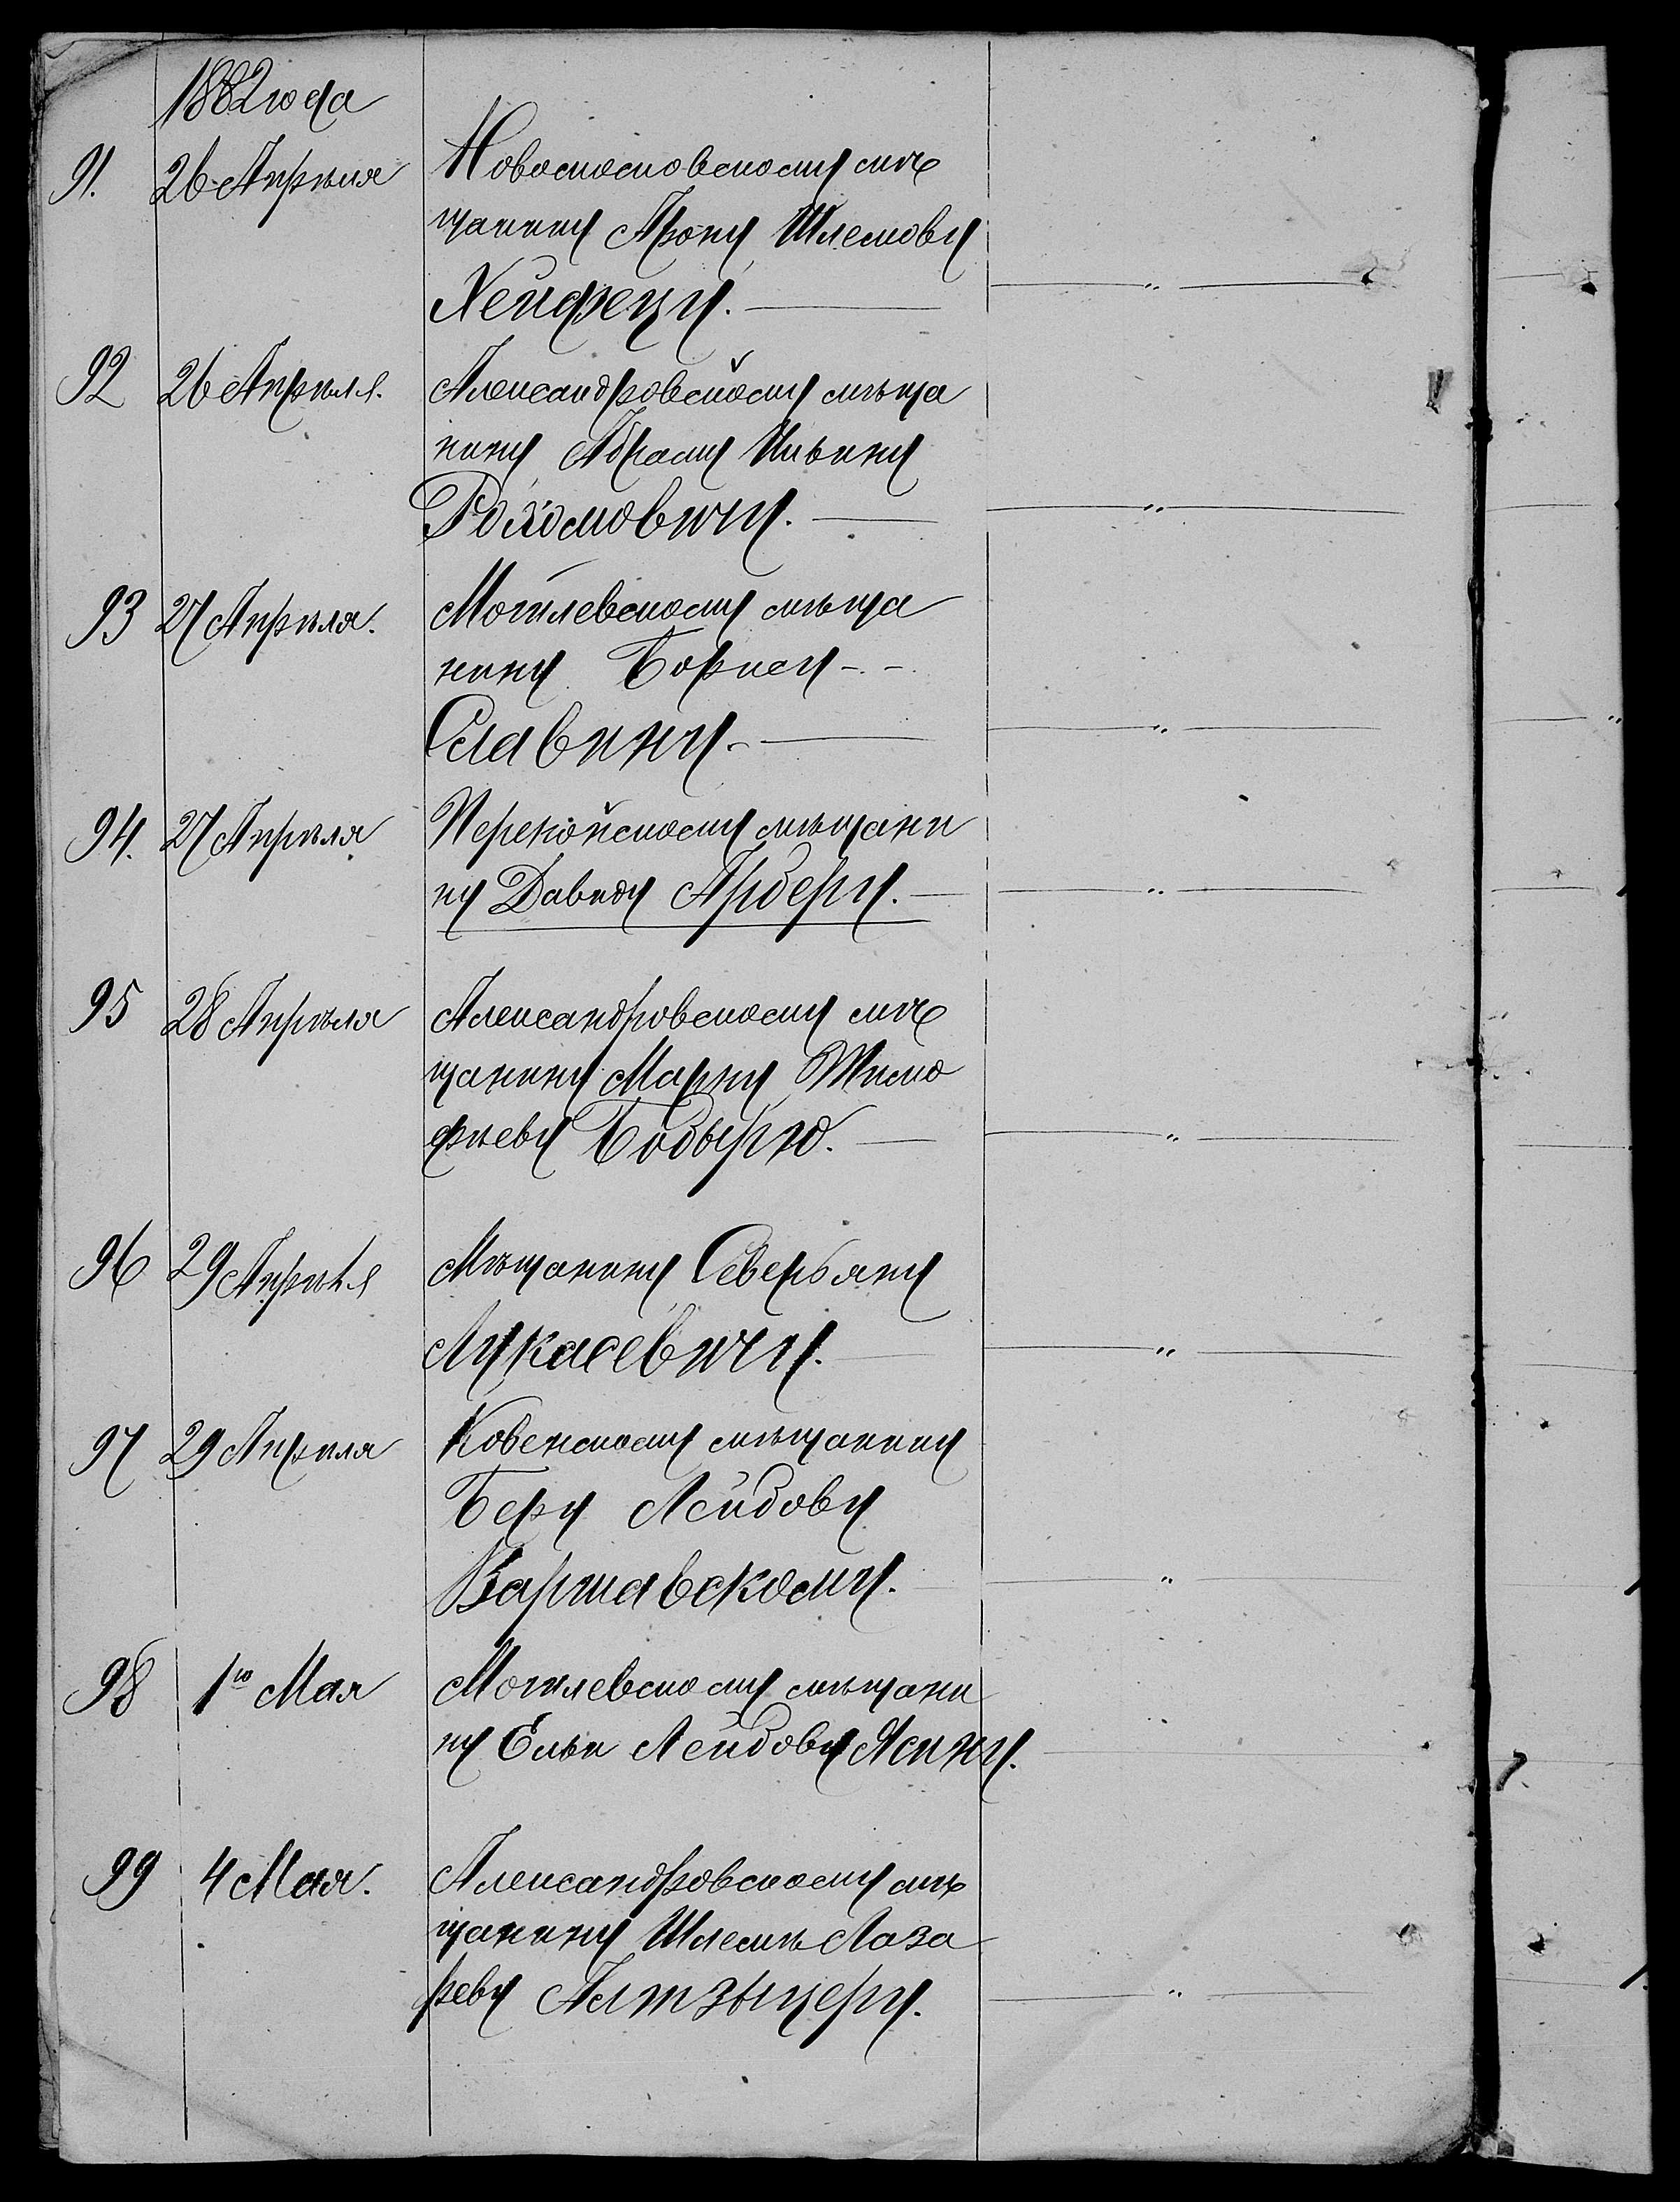 1882 года
91. 26 Апрѣля Новомосковскому мѣ
щанину Арону Шлемову
Хейфецу. — „ —
92 26 Апрѣля. Александровскому мѣща
нину Абраму Ильину
Рохомовичу. — „ —
93 27 Апрѣля. Могилевскому мѣща
нину Борису - -
Славину. — „ —
94. 27 Апрѣля Перекопскому мѣщани
ну Давиду Арберу. — „ —
95 28 Апрѣля Александровскому мѣ
щанину Марку Тимо
фѣеву Бобырю. — „ —
96 29 Апрѣля Мѣщанину Северьяну
Лукасевичу. — „ —
97 29 Апрѣля Ковенскому мѣщанину
Беру Лейбову
Варшавскому. — „ —
98 1го Мая Могилевскому мѣщани
ну Ельи Лейбову Ясину.
99 4 Мая. Александровскому мѣ
щанину Шлемѣ Лаза
реву Альтзыцеру. — „ —